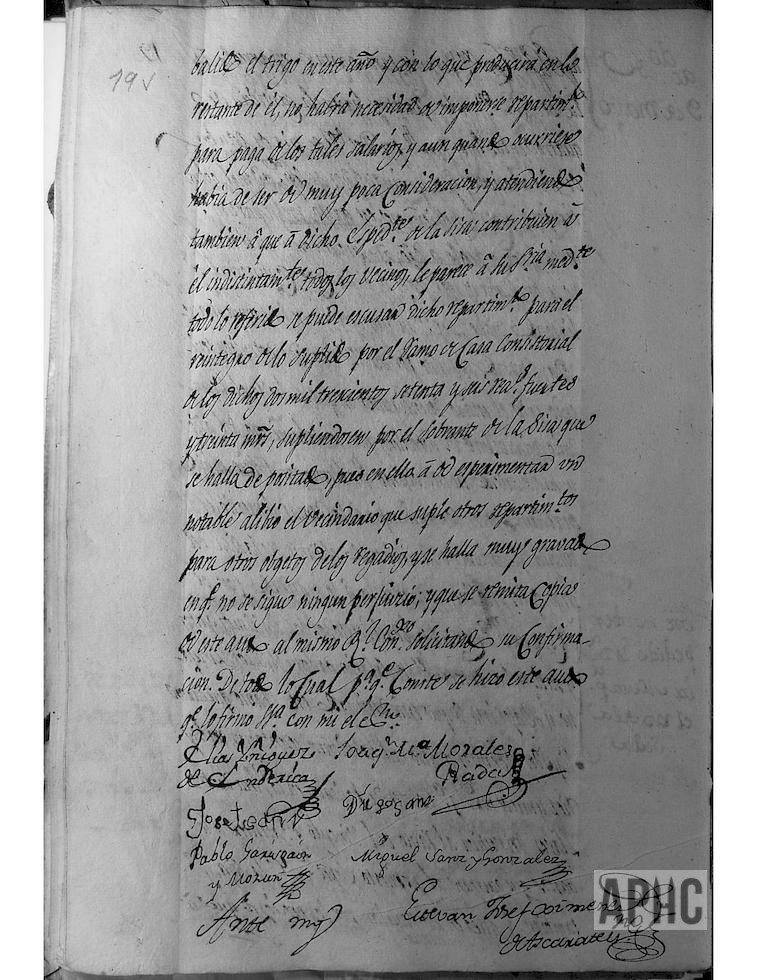 19v
balie el trigo en este año y con lo que producirá en lo
restante de él, no habrá necesidad de imponerse repartim.to
para paga de los tales salarios, y aun quando ocurriese
habia de ser de muy poca Consideracion, y atendiendo
tambien á que á dicho Exped.te de la Sisa contribuien á
él indistintam.te todos los Vecinos, le parece á su S.ria med.te
todo lo referido se puede escusar dicho repartim.to para el
reintegro de lo suplido por el Ramo de Casa Consistorial
de los dichos dos mil trescientos setenta y seis rea.s fuertes
y treinta mrs, supliendosen por el sobrante de la Sisa que
se halla depositado, pues en ello á de esperimentar un
notable alibio el Vecindario que suple otros repartim.tos
para otros objetos de los regadios, y se halla muy gravado
en q.e no se sigue ningun perjuicio; y que se remita Copia
de este auto al mismo R.l Con.xo solicitando su Confirma-
cion. De todo lo Cual p.a q.e Conste se hizo este auto
q.e lo firmó S.ria con mi el Es.no
Elias Yñiguez Joaq.n M.a Morales
de Rada
Jose
Pablo Garisoain Miguel Sanz y Gonzalez
y Morun
Ante my Estevan Josef Ximenez
de Ascarate
APHC